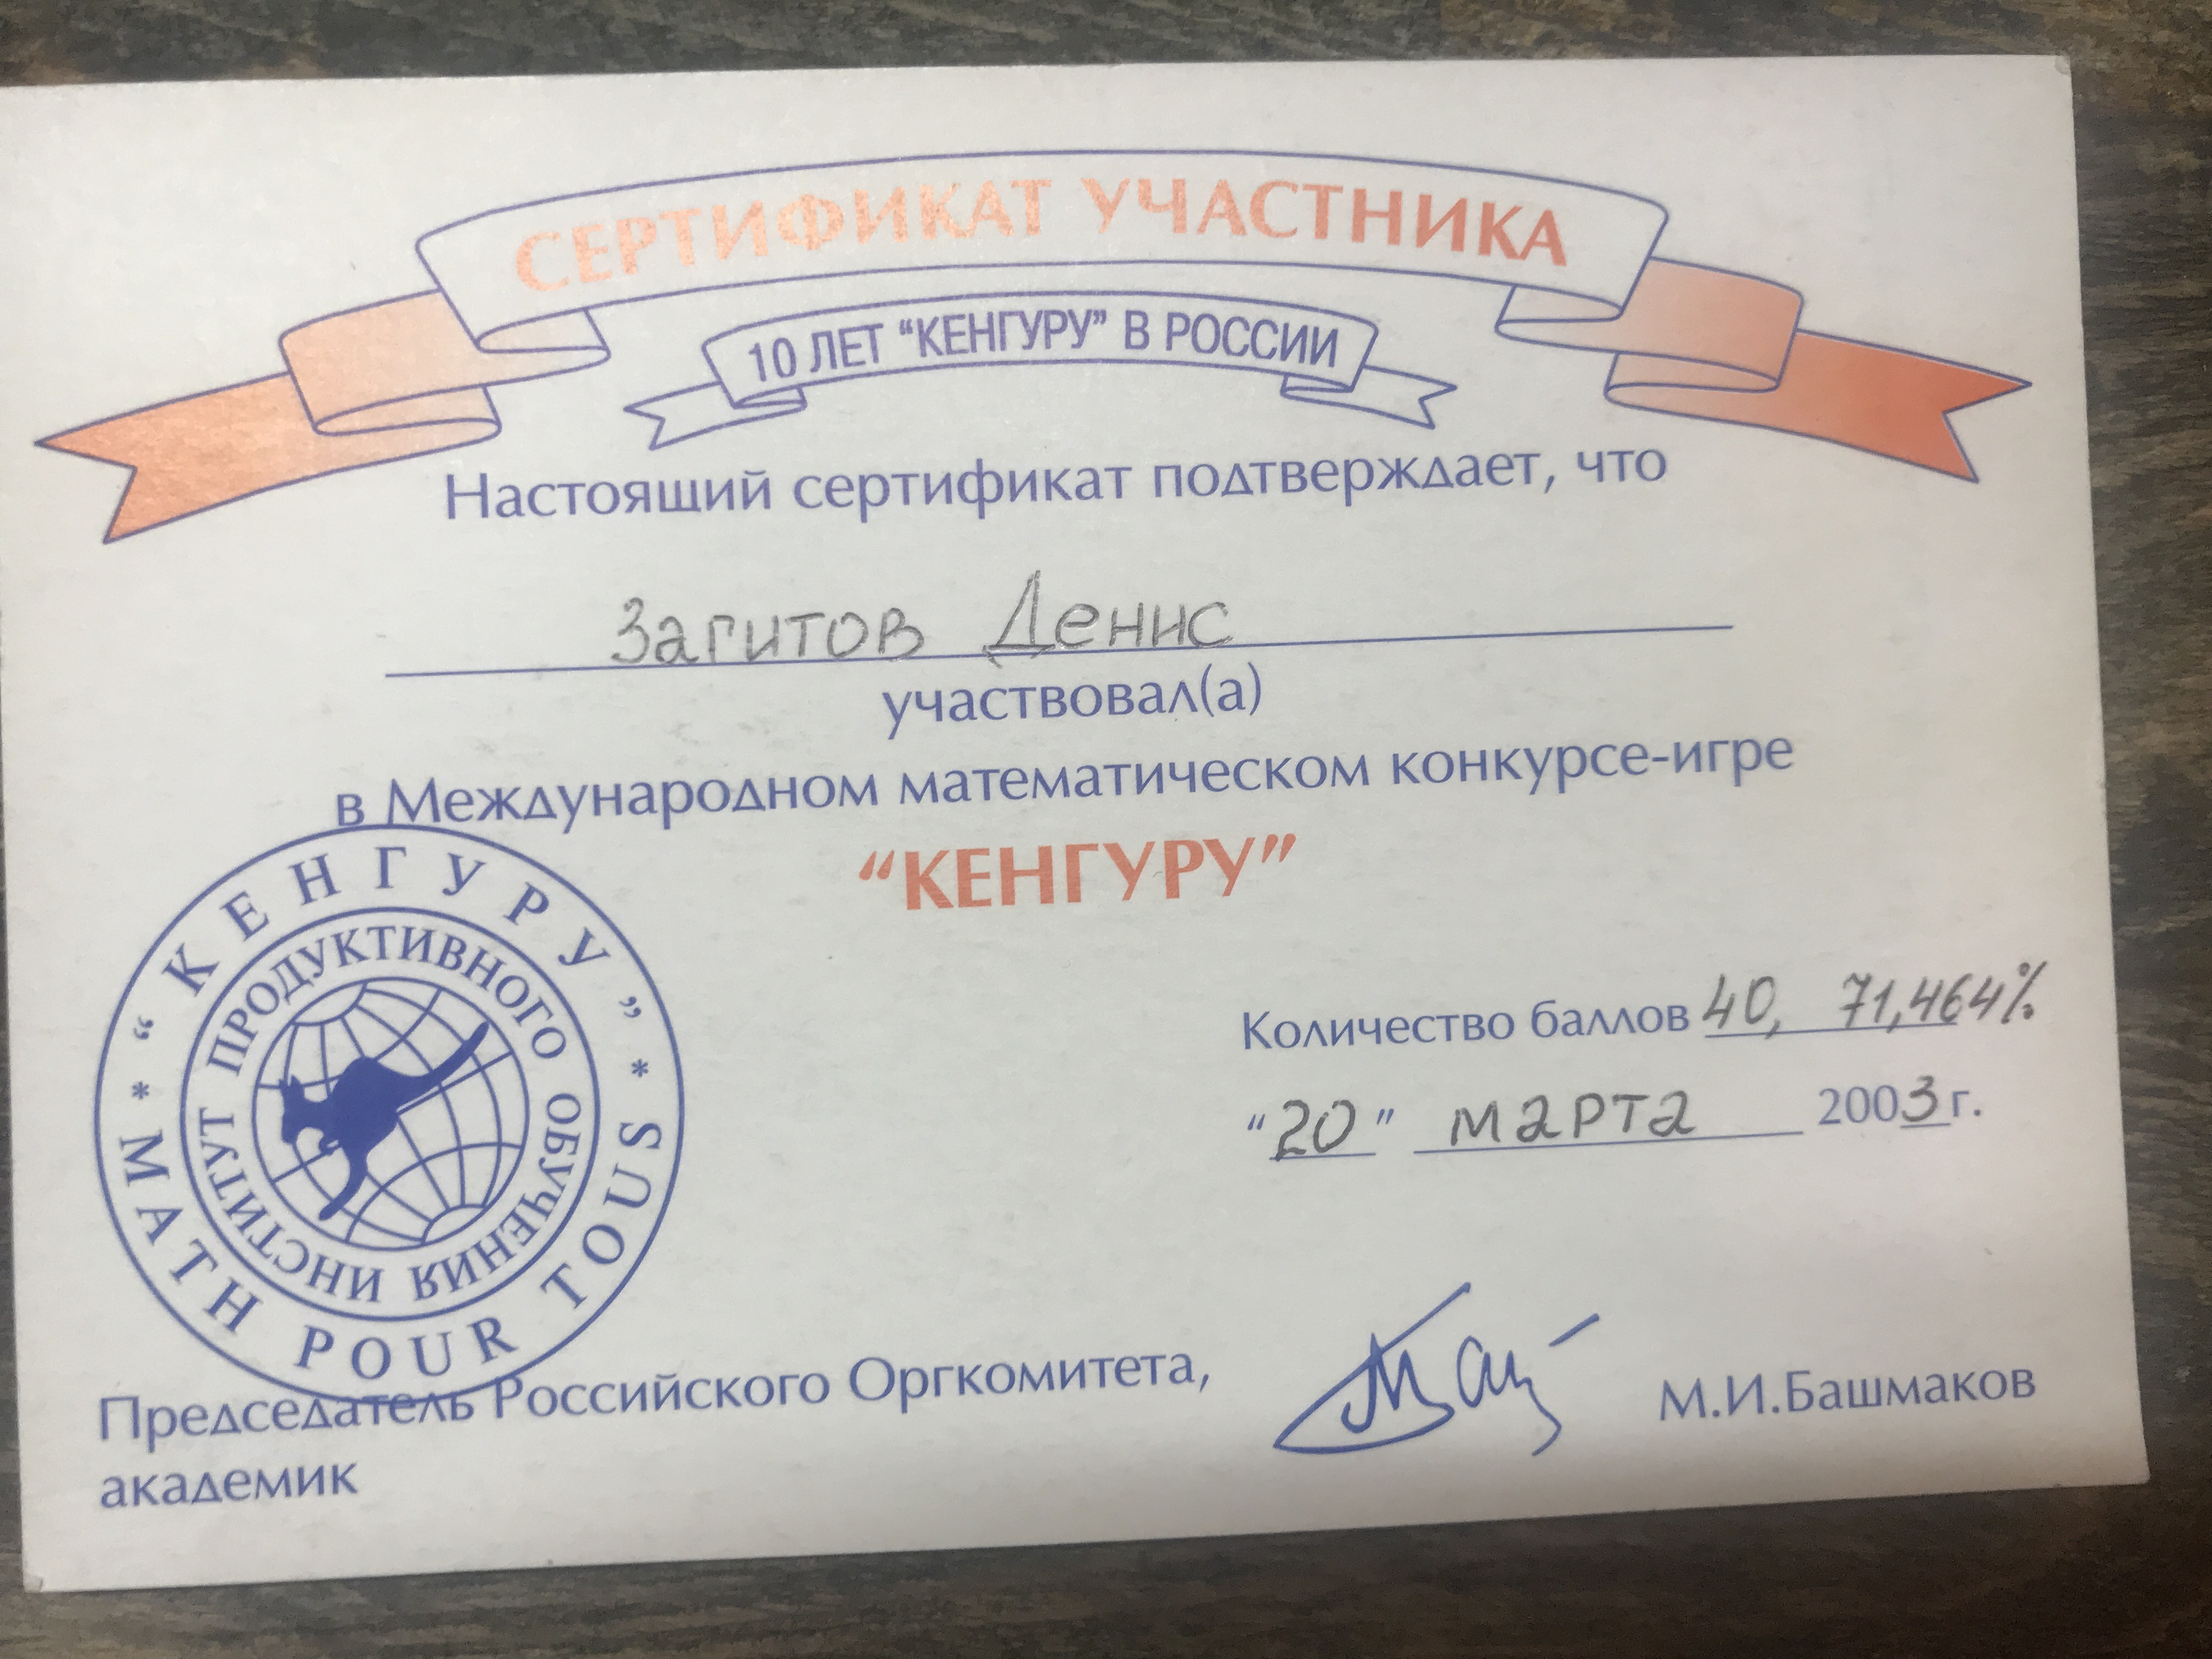 СЕРТИФИКАТ УЧАСТНИКА
10 ЛЕТ “КЕНГУРУ” В РОССИИ
Настоящий сертификат подтверждает, что
Загитов Денис
участвовал(а)
в Международном математическом конкурсе-игре
“КЕНГУРУ”
“КЕНГУРУ” * MATH POUR TOUS *
ИНСТИТУТ ПРОДУКТИВНОГО ОБУЧЕНИЯ
Количество баллов 40, 71,464%
“20” марта 2003 г.
Председатель Российского Оргкомитета, М.И.Башмаков
академик